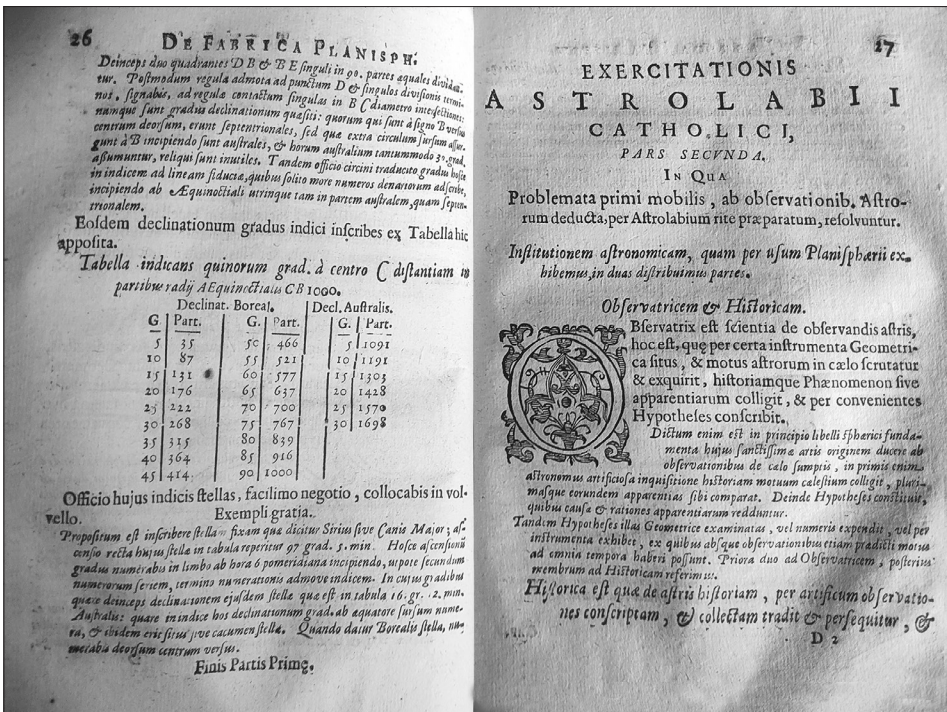 26
DE FABRICA PLANISPH.
Deinceps duo quadrantes D B & B E singuli in 90. partes aequales dividan-
tur. Postmodum regula admota ad punctum D & singulos divisionis termi-
nos, signabis, ad regulae contactum singulas in B C diametro intersectiones:
numque sunt gradus declinationum quaesiti: quorum qui sunt à signo B versus
centrum deorsum, erunt septentrionales, sed quae extra circulum sursum assur-
gunt à B incipiendo sunt australes, & horum australium tantummodo 30. grad.
assumuntur, reliqui sunt inutiles. Tandem officio circini traducito gradus hosce
in indicem ad lineam fiduciae, quibus solito more numeros denariorum adscribe,
incipiendo ab AEquinoctiali utrinque tam in partem australem, quam septen-
trionalem.
Eosdem declinationum gradus indici inscribes ex Tabella hic
apposita.
Tabella indicans quinorum grad. à centro C distantiam in
partibus radij AEquinoctialis CB 1000.
Declinat. Boreal. Decl. Australis.
G Part. G. Part. G. Part.
5 35 50 466 5 1091
10 87 55 521 10 1191
15 131 60 577 15 1303
20 176 65 637 20 1428
25 222 70 700 25 1570
30 268 75 767 30 1698
35 315 80 839
40 364 85 916
45 414 90 1000
Officio hujus indicis stellas, facilimo negotio, collocabis in vol-
vello. Exempli gratia.
Propositum est inscribere stellam fixam quae dicitur Sirius sive Canis Major; as-
censio recta hujus stellae in tabula reperitur 97 grad. 5. min. Hosce ascensionis
gradus numerabis in limbo ab hora 6 pomeridiana incipiendo, utpote secundum
numerorum seriem, termino numerationis admove indicem. In cujus gradibus
quaere deinceps declinationem ejusdem stellae quae est in tabula 16. gr. 12. min.
Australis: quare in indice hos declinationum grad. ab aequatore sursum nume-
ra, & ibidem erit situs sive cacumen stellae. Quando datur Borealis stella, nu-
merabis deorsum centrum versus.
Finis Partis Primę.
27
EXERCITATIONIS
ASTROLABII
CATHOLICI,
PARS SECVNDA.
IN QUA
Problemata primi mobilis, ab observationib. Astro-
rum deducta, per Astrolabium rite præparatum, resolvuntur.
Institutionem astronomicam, quam per usum Planisphærii ex-
hibemus, in duas distribuimus partes.
Observatricem & Historicam.
OBservatrix est scientia de observandis astris,
hoc est, quę per certa instrumenta Geometri-
ca situs, & motus astrorum in cælo scrutatur
& exquirit, historiamque Phænomenon sive
apparentiarum colligit, & per convenientes
Hypotheses conscribit.
Dictum enim est in principio libelli sphærici funda-
menta hujus sanctissimæ artis originem ducere ab
observationibus de cælo sumptis, in primis enim
astronomus artificiosa inquisitione historiam motuum cælestium collegit, pluri-
masque eorundem apparentias sibi comparat. Deinde Hypotheses constituit,
quibus causæ & rationes apparentiarum redduntur.
Tandem Hypotheses illas Geometrice examinatas, vel numeris expendit, vel per
instrumenta exhibet, ex quibus absque observationibus etiam prædicti motus
ad omnia tempora haberi possunt. Priora duo ad Observatricem, posterius
membrum ad Historicam referimus.
Historica est quæ de astris historiam, per artificum observatio-
nes conscriptam, & collectam tradit & persequitur, &
D 2